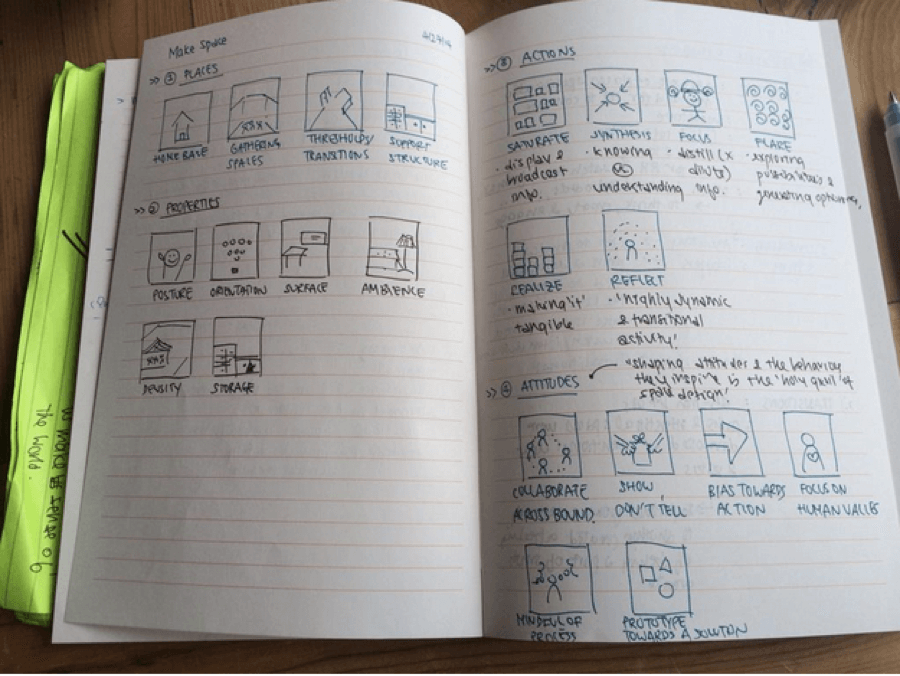 Make Space
4/27/14
>> ① PLACES
HOME BASE
GATHERING
SPACES
THRESHOLDS/
TRANSITIONS
SUPPORT
STRUCTURE
>> ② PROPERTIES
POSTURE
ORIENTATION
SURFACE
AMBIENCE
DENSITY
STORAGE
>> ③ ACTIONS
SATURATE
· display &
broadcast
info.
SYNTHESIS
· knowing
vs
understanding info.
FOCUS
· distill (x
dilute)
FLARE
· exploring
possibilities &
generating options,
REALIZE
· making 'it'
tangible
REFLECT
· 'highly dynamic
& transitional
activity'
>> ④ ATTITUDES
"shaping attitudes & the behaviors
they inspire is the 'holy grail' of
space design"
COLLABORATE
ACROSS BOUND.
SHOW,
DON'T TELL
BIAS TOWARDS
ACTION
FOCUS ON
HUMAN VALUES
MINDFUL OF
PROCESS
PROTOTYPE
TOWARDS A SOLUTION
the World.